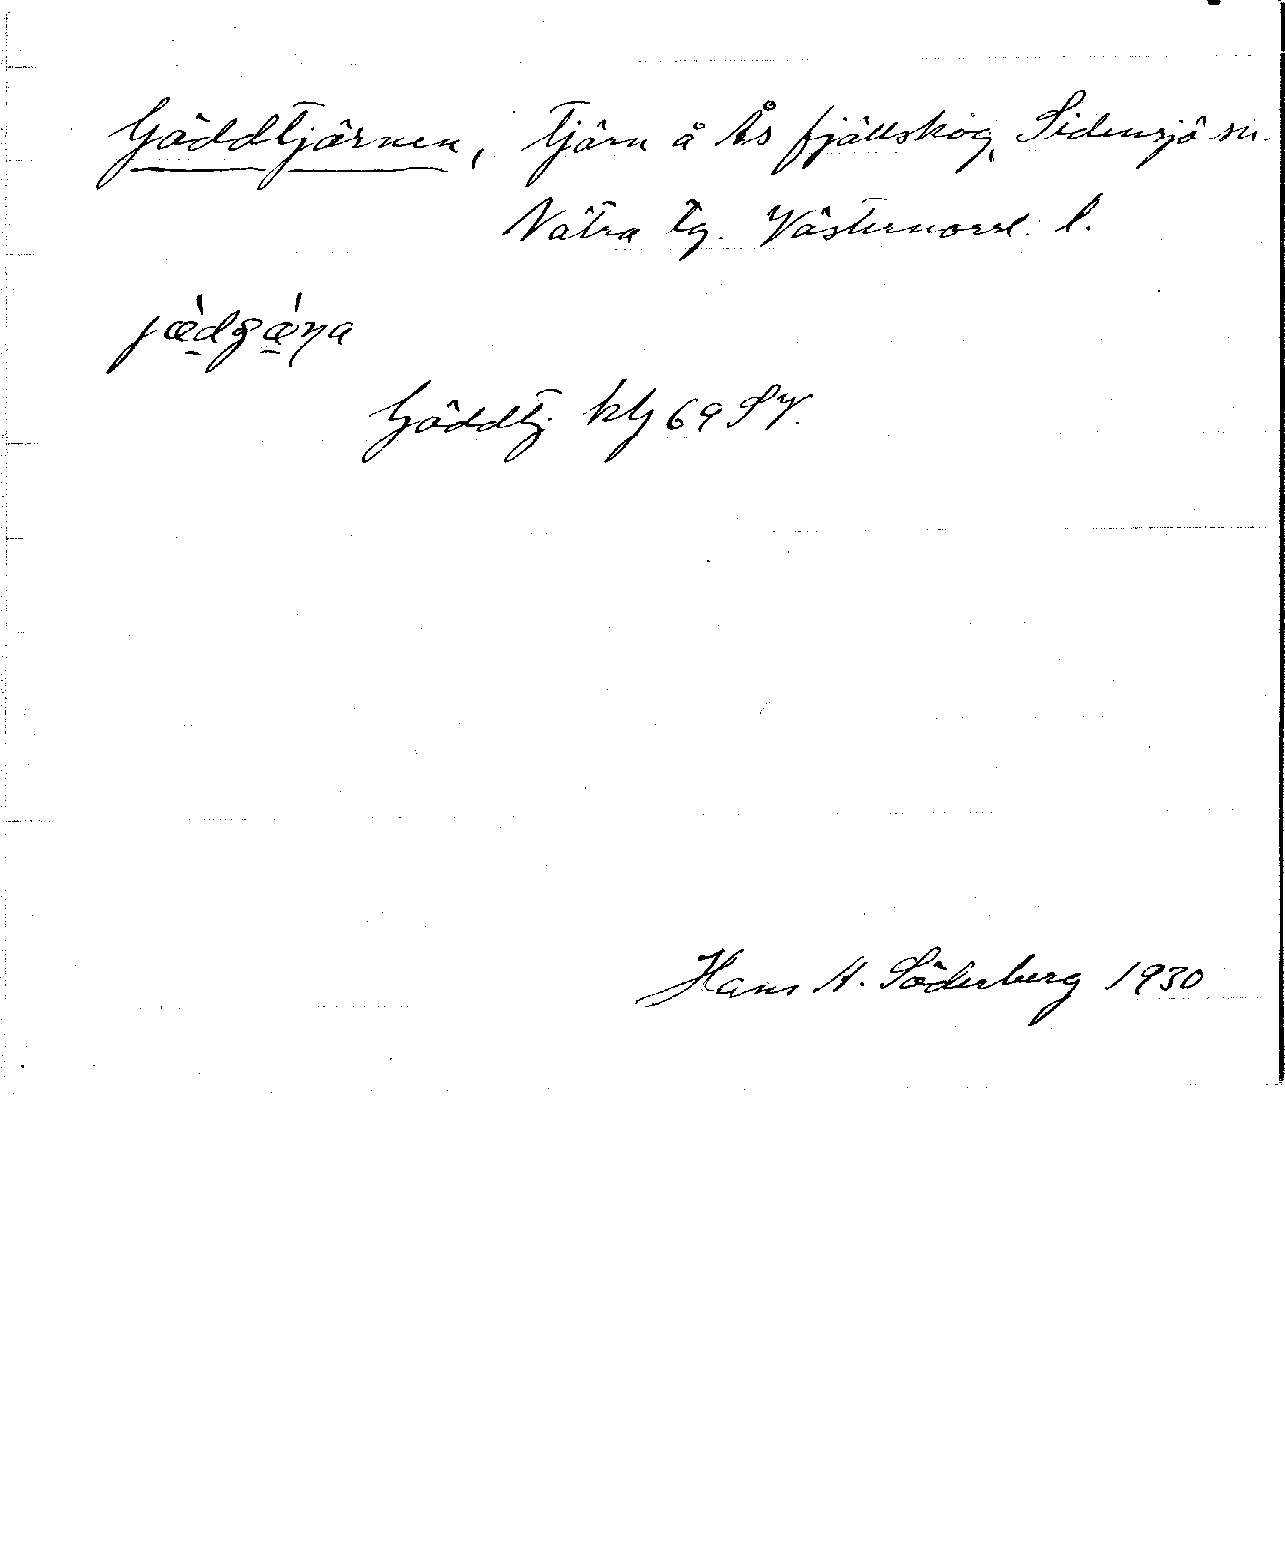 Gäddtjärnen, tjärn å Ås fjällskog, Sidensjö sn.
Nätra tg. Västernorrl. l.
Gäddtj. ktbl 69 SV.
Hans A. Söderberg 1930